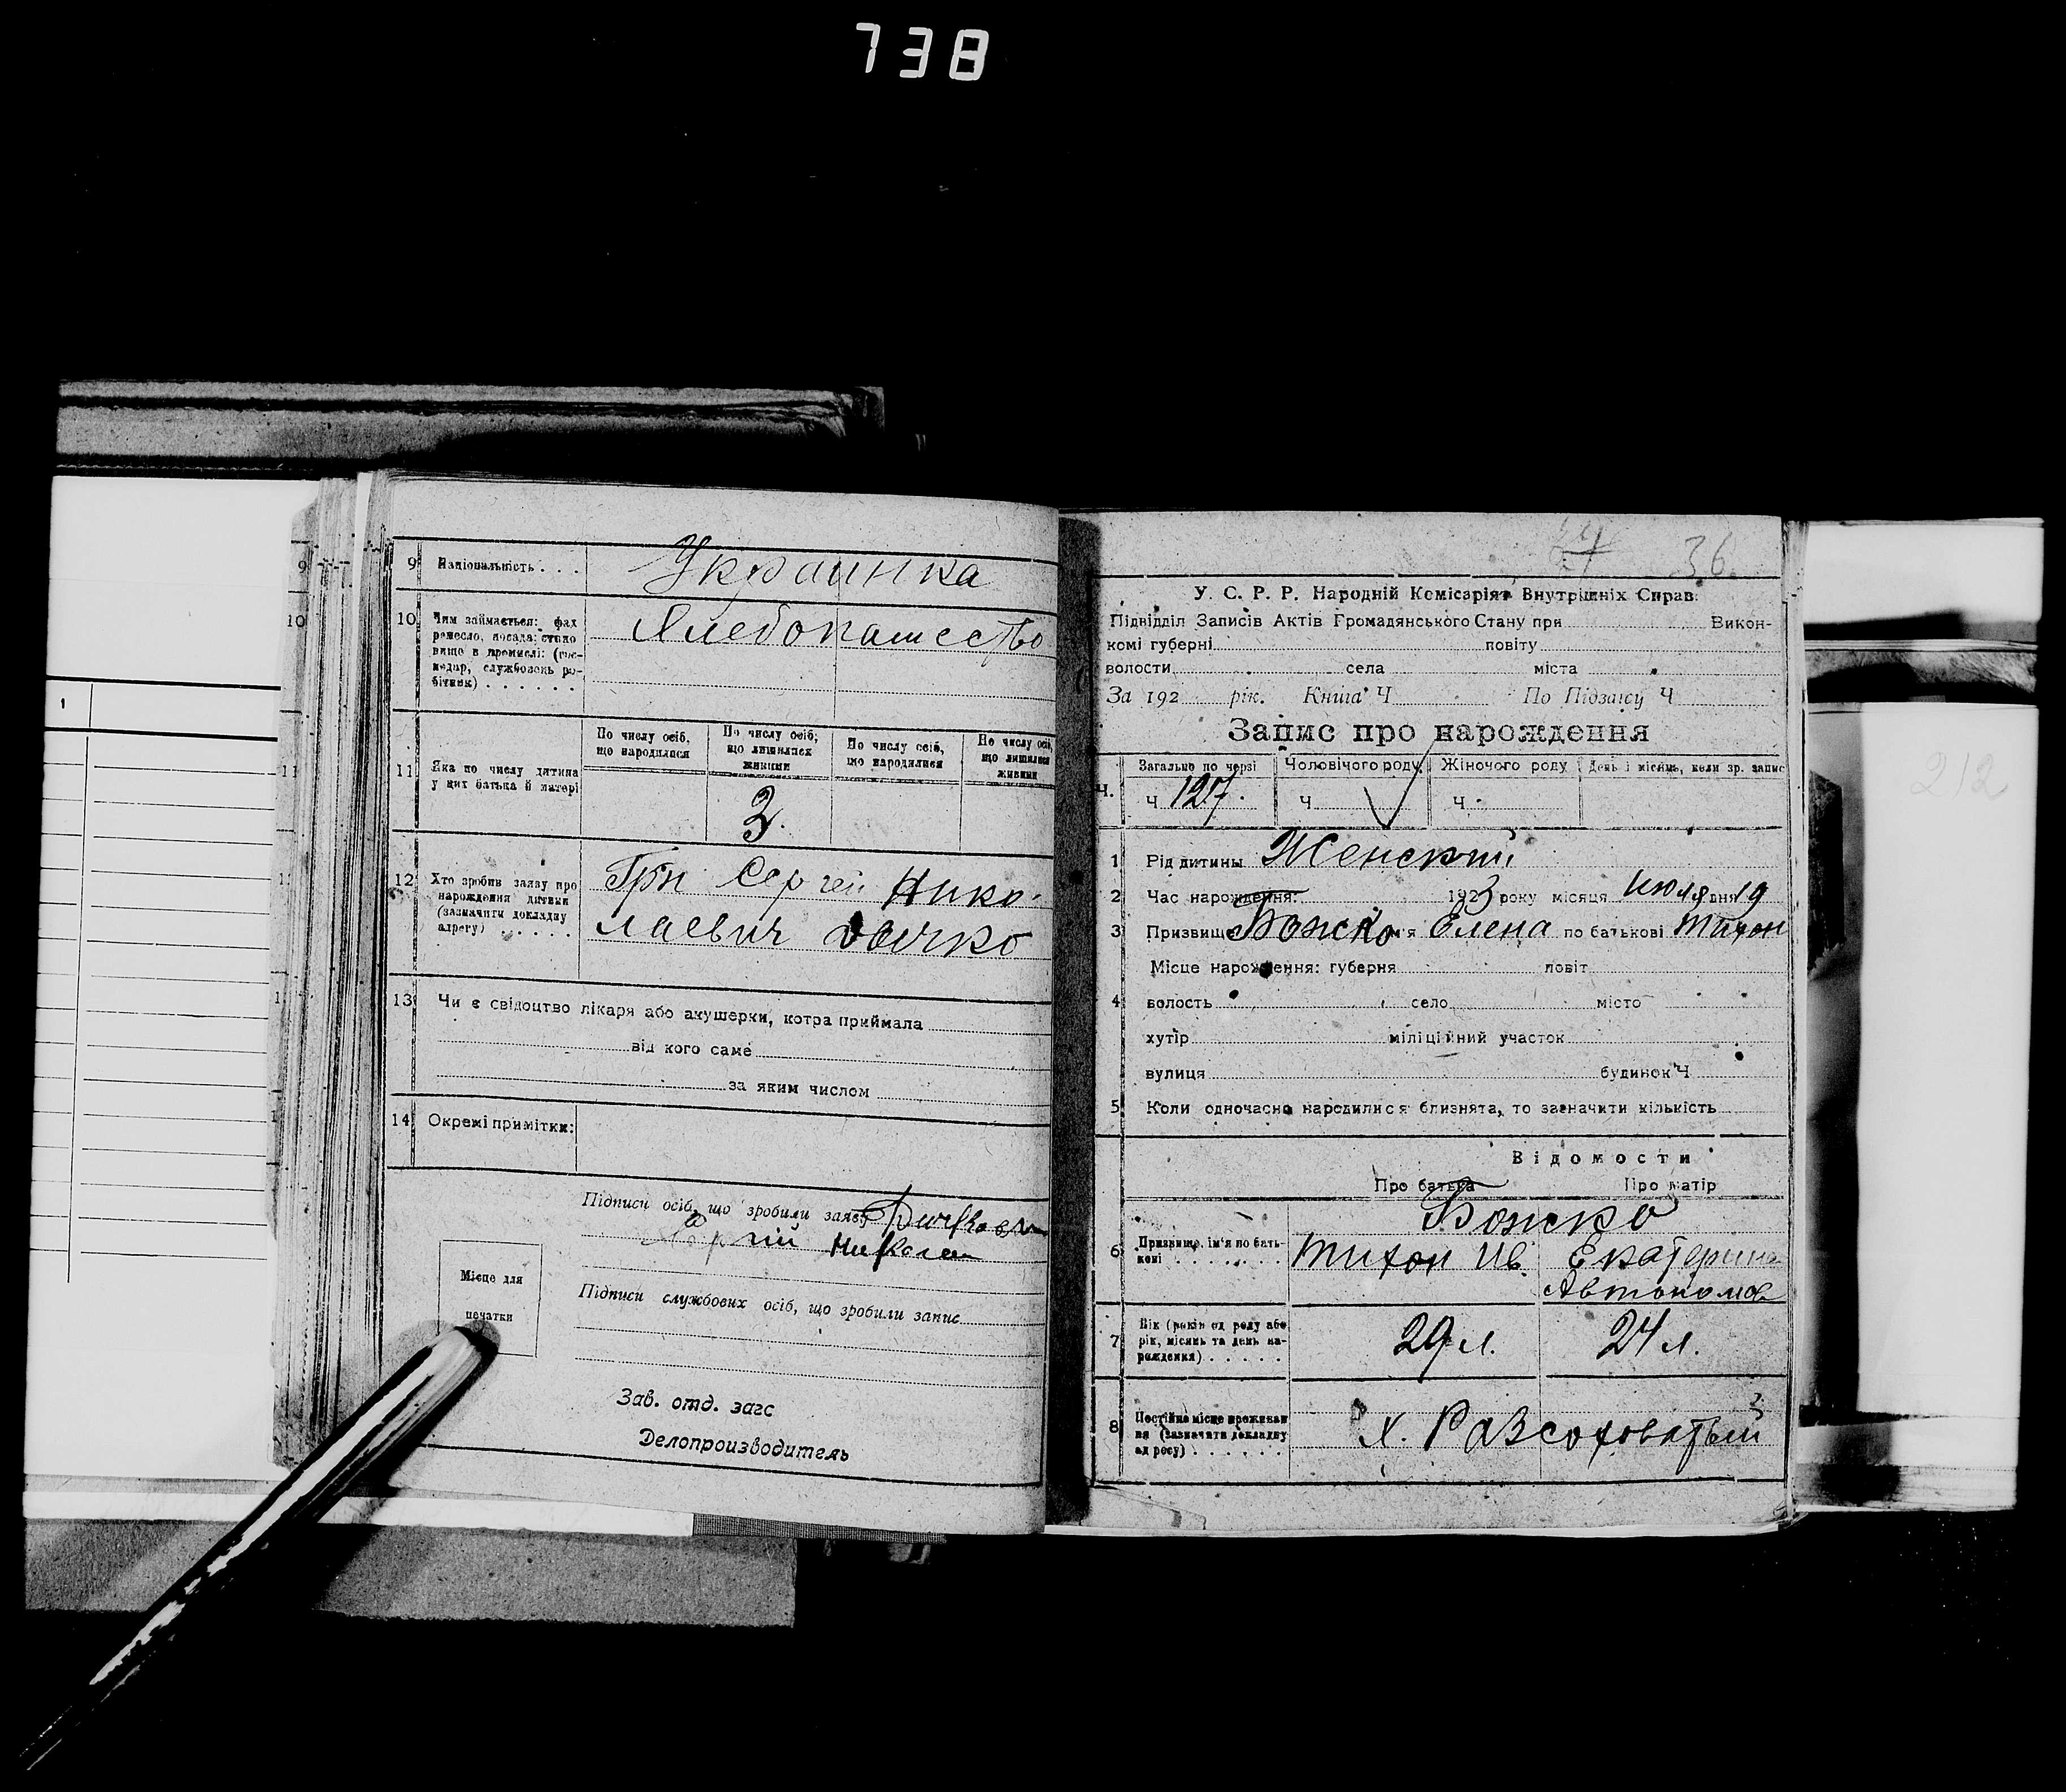 738
9 Національність . . . Украинка
10 Чим займається: фах
ремесло, посада; стано
вище в промислі: (гос-
подар, службовець ро-
бітник) . . . . . .
Хлебопашество
11 Яка по числу дитина
у цих батька й матері
По числу осіб,
що народилися
По числу осіб,
що лишилися
живими
По числу осіб,
що народилися
По числу осіб,
що лишилися
живими
12 Хто зробив заяву про
народження дитини
(зазначити докладну
адресу) . . . . . .
Грн Сергей Нико-
лаевич
13 Чи є свідоцтво лікаря або акушерки, котра приймала
від кого саме
за яким числом
14 Окремі примітки:
Підписи осіб, що зробили заяву
Місце для
печатки
Підписи службових осіб, що зробили запис
Зав. отд. загс
Делопроизводитель
36
У. С. Р. Р. Народній Комісаріят Внутрішніх Справ.
Підвідділ Записів Актів Громадянського Стану при Викон-
комі губерні повіту
волости села міста
За 192 рік. Книга Ч По Підзапису Ч
Запис про нарождення
Загально по черзі Чоловічого роду Жіночого роду День і місяць, коли зр. запис
Ч. Ч 127. Ч Ч
1 Рід дитины Женский
2 Час нарождення: 1923 року місяця Июля дня 19
3 Призвище Божко ім'я Елена по батькові Тихон
Місце нарождення: губерня повіт
4 волость село місто
хутір міліційний участок
вулиця будинок Ч
5 Коли одночасно народилися близнята, то зазначити кількість
Відомости
Про батька Про матір
Божко
6 Призвище, ім'я по бать-
кові . . . . . . .
Тихон Ив. Екатерина
Автономов
7 Вік (років од роду або
рік, місяць та день на-
рождення) . . . . .
29 л. 24 л.
8 Постійне місце проживан
ня (зазначити докладну
адресу) . . . . . .
х. Разсоховатый
212